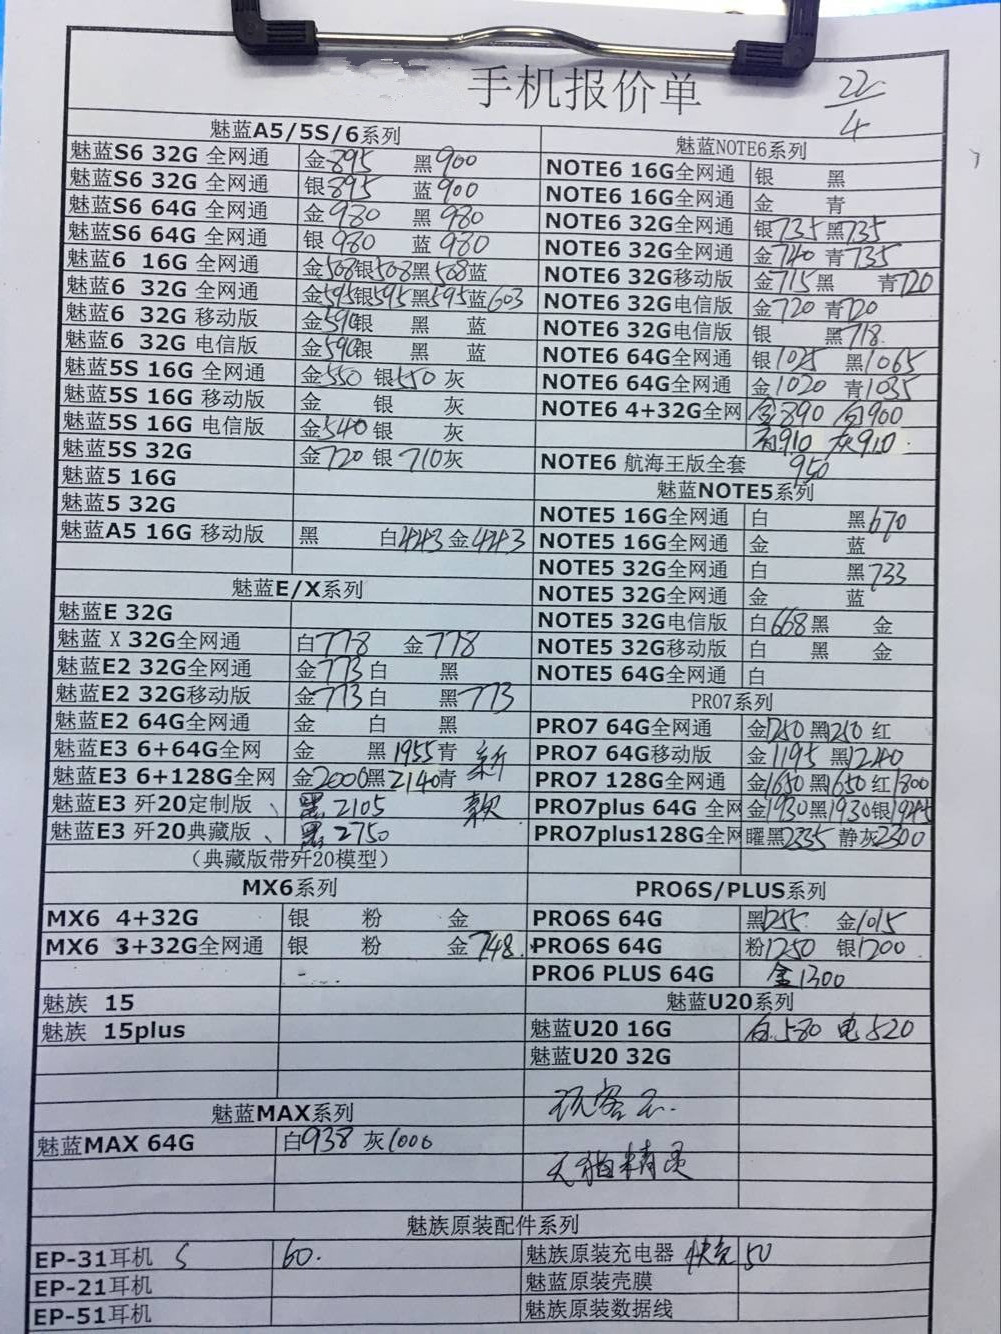 手机报价单
22/4
魅蓝A5/5S/6系列
魅蓝S6 32G 全网通 金895 黑900
魅蓝S6 32G 全网通 银895 蓝900
魅蓝S6 64G 全网通 金980 黑980
魅蓝S6 64G 全网通 银980 蓝980
魅蓝6 16G 全网通 金508银508黑508蓝
魅蓝6 32G 全网通 金595银595黑595蓝603
魅蓝6 32G 移动版 金590银 黑 蓝
魅蓝6 32G 电信版 金590银 黑 蓝
魅蓝5S 16G 全网通 金550 银550 灰
魅蓝5S 16G 移动版 金 银 灰
魅蓝5S 16G 电信版 金540 银 灰
魅蓝5S 32G 金720 银710灰
魅蓝5 16G
魅蓝5 32G
魅蓝A5 16G 移动版 黑 白443 金443
魅蓝E/X系列
魅蓝E 32G
魅蓝 X 32G全网通 白778 金778
魅蓝E2 32G全网通 金773 白 黑
魅蓝E2 32G移动版 金773 白 黑773
魅蓝E2 64G全网通 金 白 黑
魅蓝E3 6+64G全网 金 黑1955青 新
魅蓝E3 6+128G全网 金2000黑2140青
魅蓝E3 歼20定制版、 黑 2105 款
魅蓝E3 歼20典藏版、 黑 2750
（典藏版带歼20模型）
MX6系列
MX6 4+32G 银 粉 金
MX6 3+32G全网通 银 粉 金748.
魅族 15
魅族 15plus
魅蓝MAX系列
魅蓝MAX 64G 白938 灰1000
魅蓝NOTE6系列
NOTE6 16G全网通 银 黑
NOTE6 16G全网通 金 青
NOTE6 32G全网通 银735黑735
NOTE6 32G全网通 金740 青735
NOTE6 32G移动版 金715黑 青720
NOTE6 32G电信版 金720 青720
NOTE6 32G电信版 银 黑718.
NOTE6 64G全网通 银1025 黑1065
NOTE6 64G全网通 金1020 青1035
NOTE6 4+32G全网 金890 白900
青910 灰910.
NOTE6 航海王版全套 950
魅蓝NOTE5系列
NOTE5 16G全网通 白 黑670
NOTE5 16G全网通 金 蓝
NOTE5 32G全网通 白 黑733
NOTE5 32G全网通 金 蓝
NOTE5 32G电信版 白668黑 金
NOTE5 32G移动版 白 黑 金
NOTE5 64G全网通 白
PRO7系列
PRO7 64G全网通 金1250 黑1250 红
PRO7 64G移动版 金1195 黑1240
PRO7 128G全网通 金1650 黑1650 红1800
PRO7plus 64G 全网 金1930黑1930银1945
PRO7plus128G全网 曜黑2335 静灰2300
PRO6S/PLUS系列
PRO6S 64G 黑1255 金1015
PRO6S 64G 粉1250 银1200
PRO6 PLUS 64G 金1300
魅蓝U20系列
魅蓝U20 16G 白580 电520
魅蓝U20 32G
玩客云.
天猫精灵
魅族原装配件系列
EP-31耳机 S 60.
EP-21耳机
EP-51耳机
魅族原装充电器 快充 50
魅蓝原装壳膜
魅族原装数据线